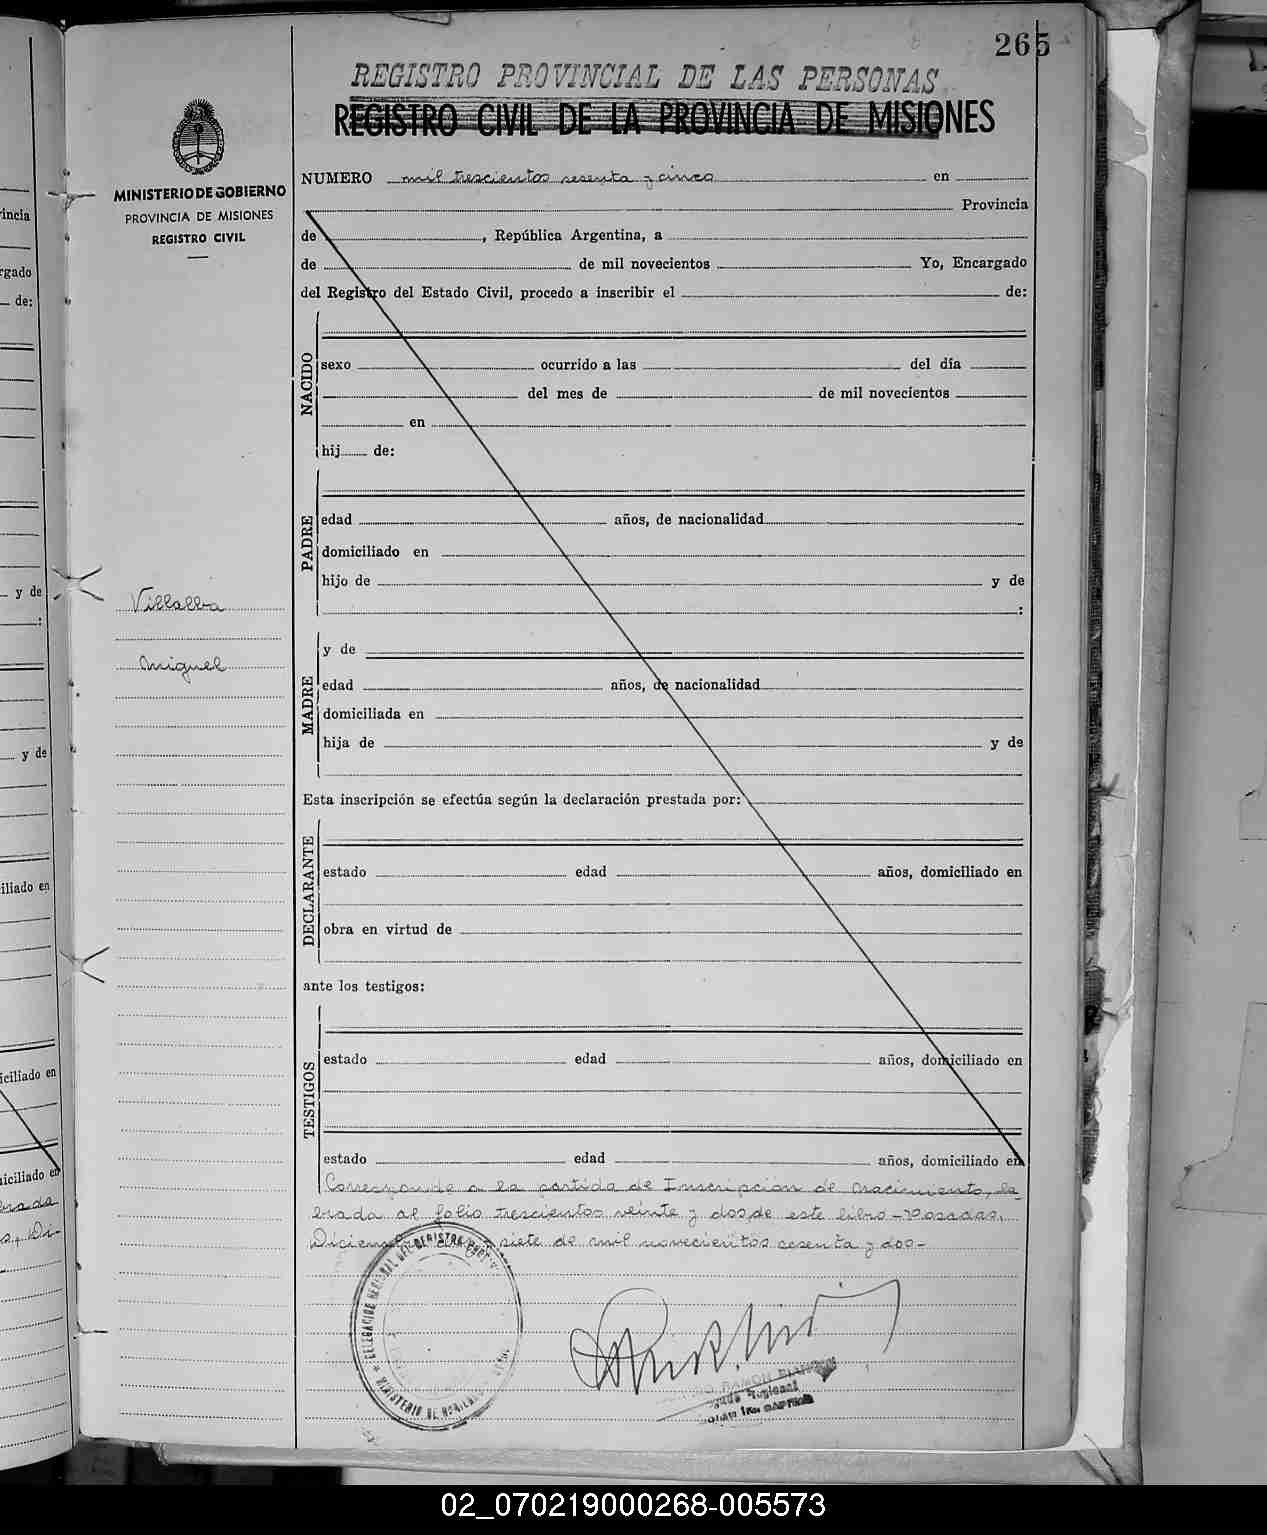 265
REGISTRO PROVINCIAL DE LAS PERSONAS
REGISTRO CIVIL DE LA PROVINCIA DE MISIONES
MINISTERIO DE GOBIERNO
PROVINCIA DE MISIONES
REGISTRO CIVIL
NUMERO mil trescientos sesenta y cinco en
Provincia
de , República Argentina, a
de de mil novecientos Yo, Encargado
del Registro del Estado Civil, procedo a inscribir el de:
NACIDO
sexo ocurrido a las del día
del mes de de mil novecientos
en
hij de:
PADRE
edad años, de nacionalidad
domiciliado en
hijo de y de
:
Villalba
Miguel
MADRE
y de
edad años, de nacionalidad
domiciliada en
hija de y de
Esta inscripción se efectúa según la declaración prestada por:
DECLARANTE
estado edad años, domiciliado en
obra en virtud de
ante los testigos:
TESTIGOS
estado edad años, domiciliado en
estado edad años, domiciliado en
Corresponde a la partida de Inscripción de Nacimiento, la
brada al folio trescientos veinte y dos de este libro - Posadas,
siete de mil novecientos sesenta y dos-
DELEGACION REGIONAL DEL REGISTRO
MINISTERIO DE
RAMON
Regional
incia
rgado
de:
y de
:
y de
iliado en
iciliado en
iciliado en
brada
s, Di-
02_070219000268-005573